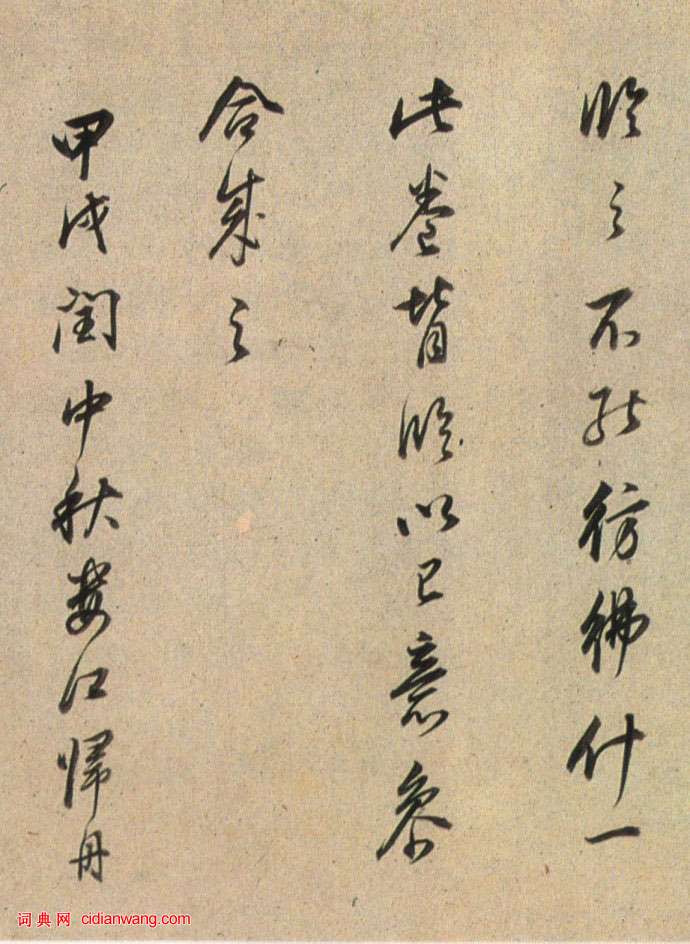 臨之不能彷彿什一
此卷皆臨以己意參
合成之
甲戌閏中秋婁江歸舟
词典网 cidianwang.com